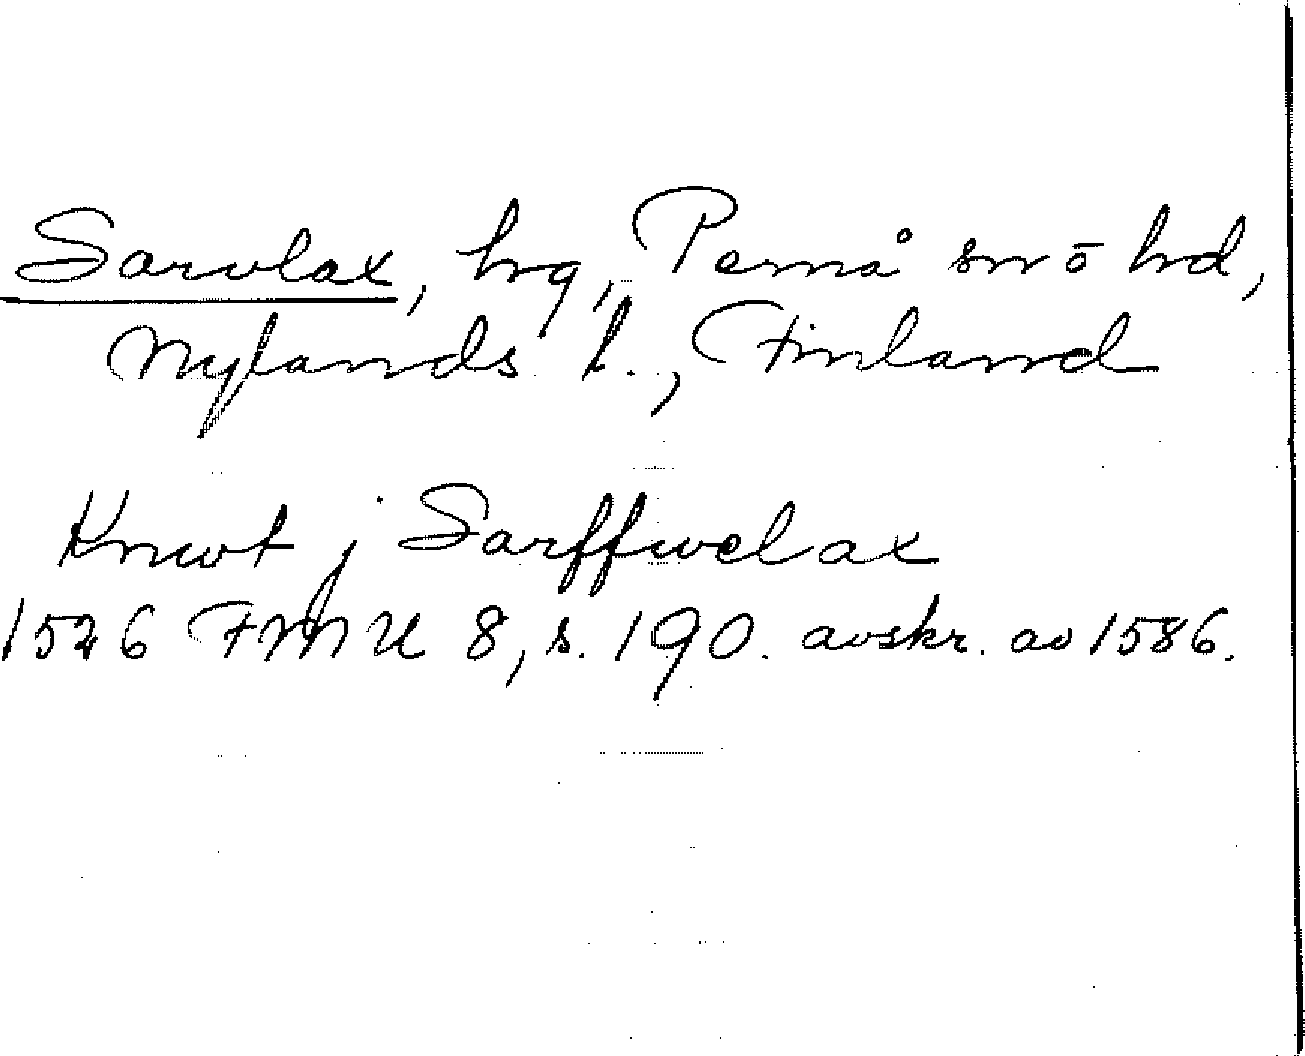 Sarvlax, hrg, Pernå sn o hd,
Nylands l., Finland
Knwt j Sarffwelax
1526 FMU 8, s. 190. avskr. av 1586.